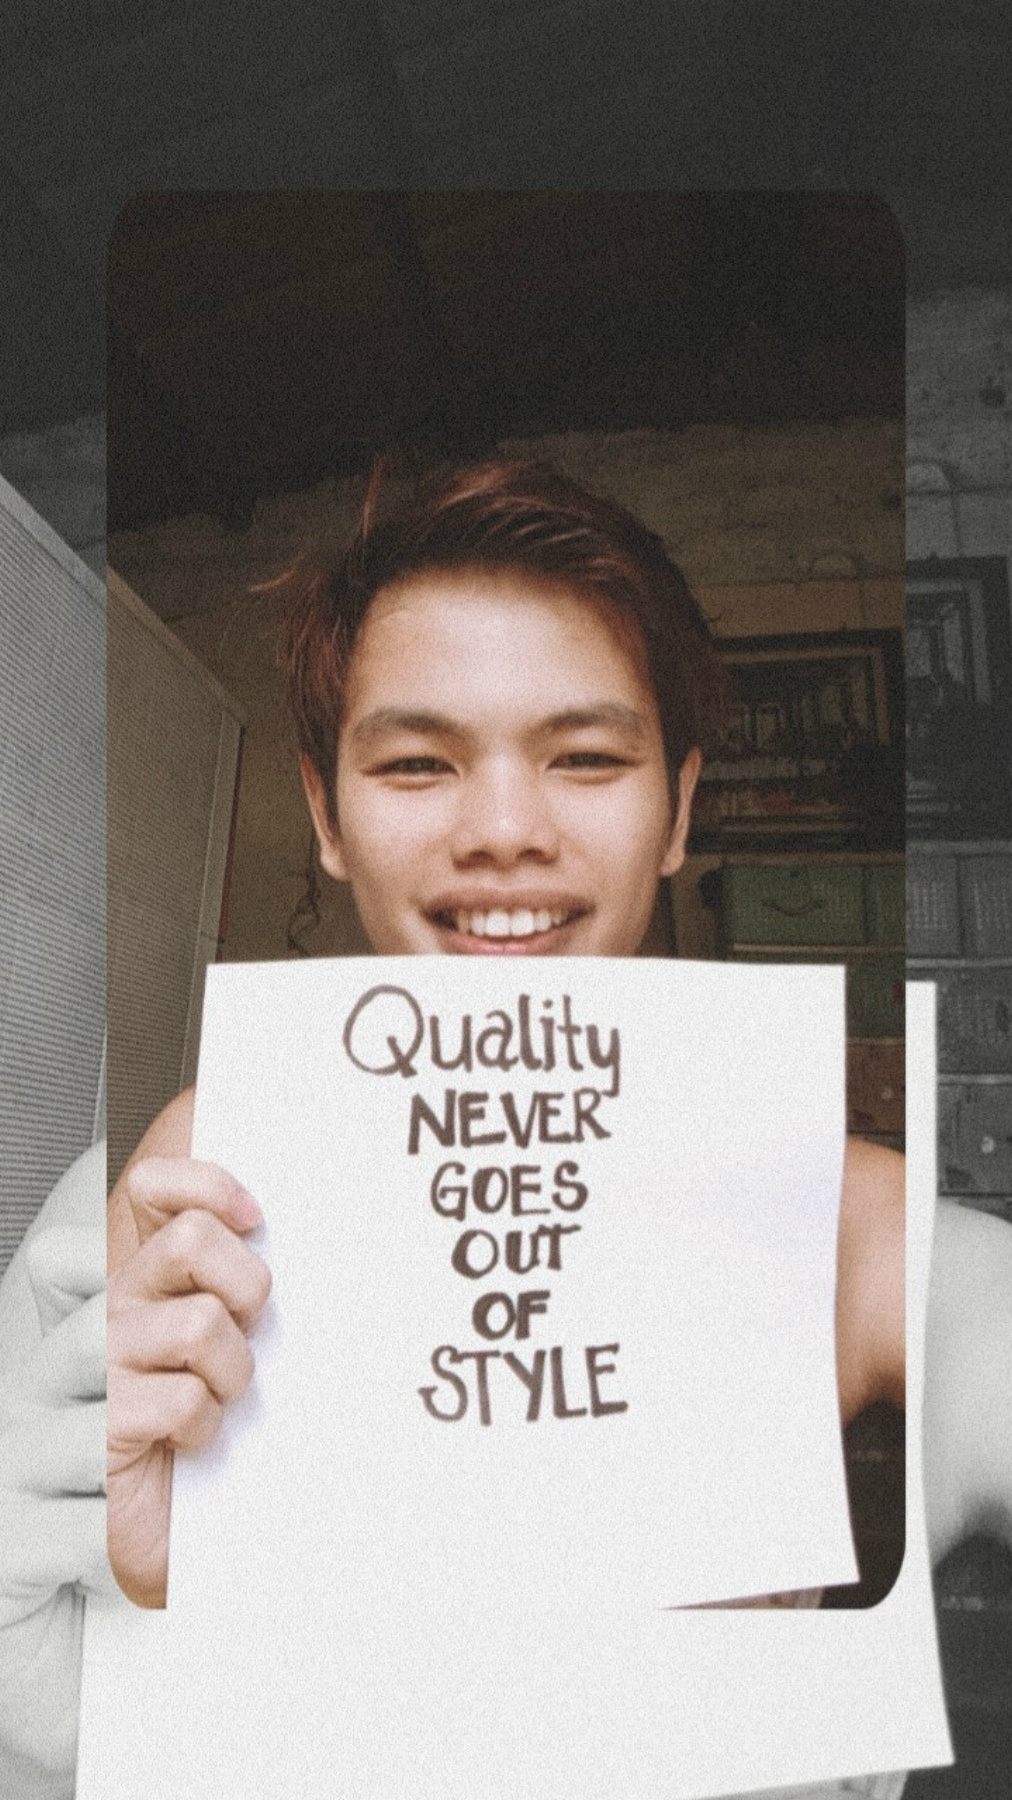 Quality
NEVER
GOES
OUT
OF
STYLE